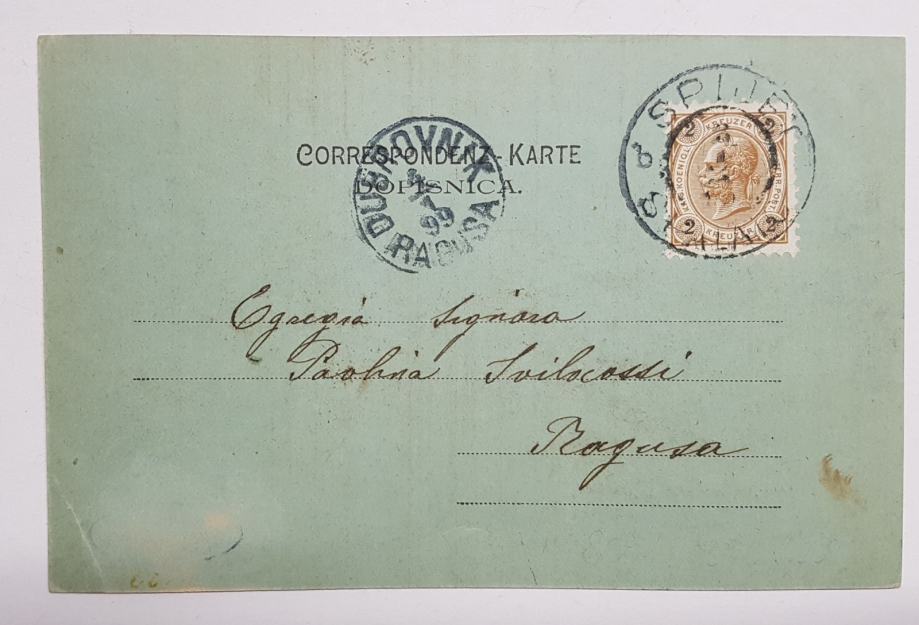 CORRESPONDENZ-KARTE
DOPISNICA.
DUBROVNIK
99
RAGUSA
2 KREUZER 2
2 KREUZER 2
Egregia Signora
Paolina Svilocossi
Ragusa